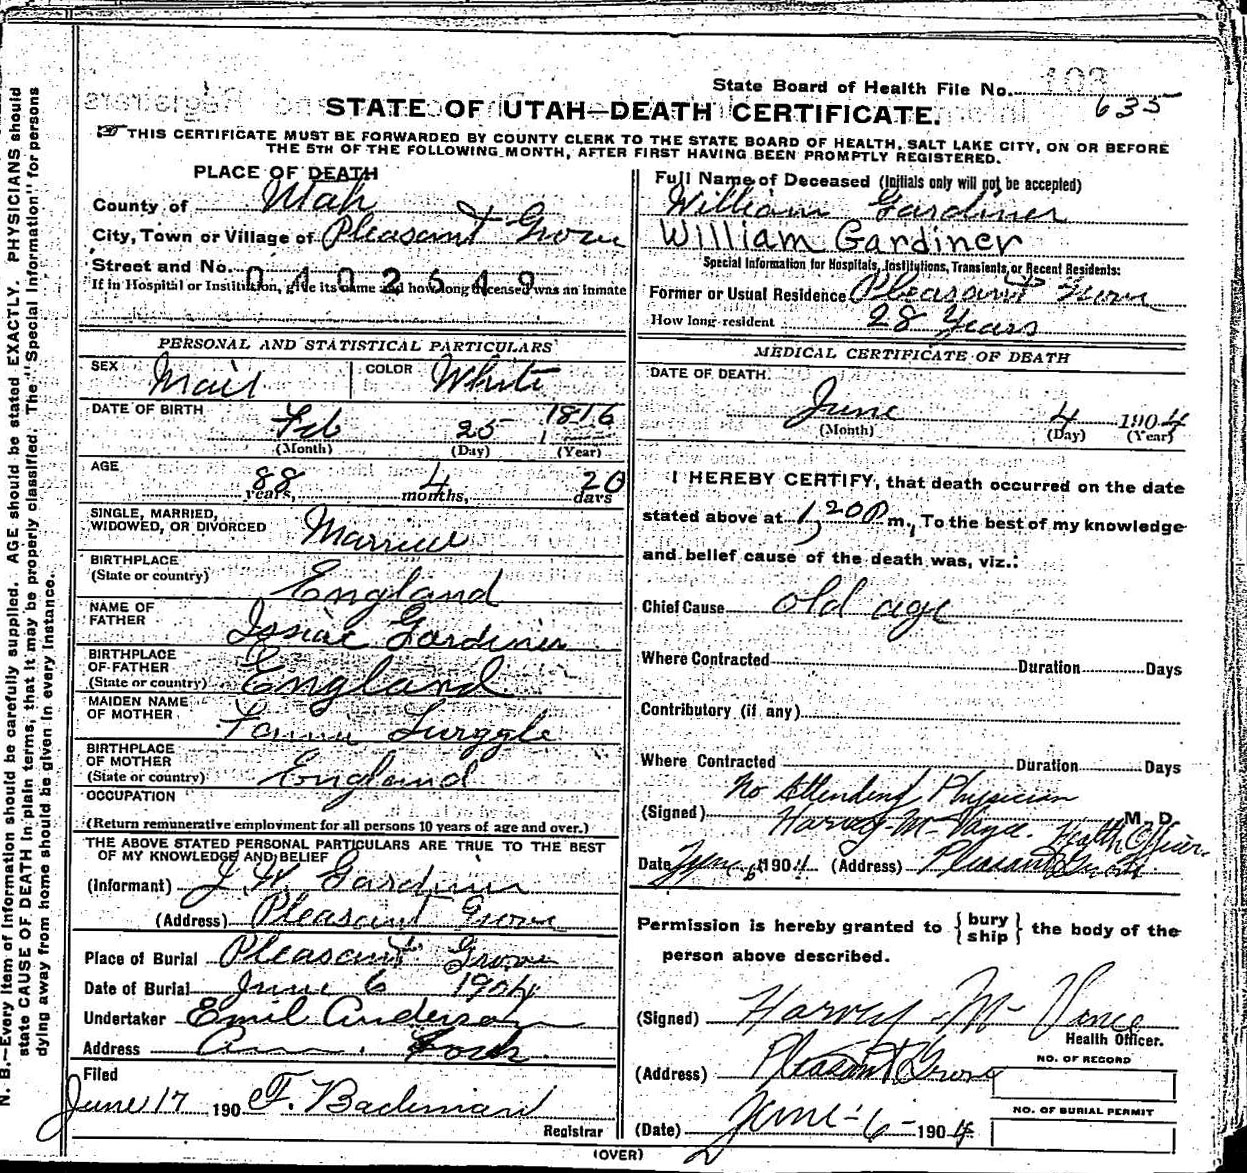 State Board of Health File No. 103
635
STATE OF UTAH—DEATH CERTIFICATE.
THIS CERTIFICATE MUST BE FORWARDED BY COUNTY CLERK TO THE STATE BOARD OF HEALTH, SALT LAKE CITY, ON OR BEFORE
THE 5TH OF THE FOLLOWING MONTH, AFTER FIRST HAVING BEEN PROMPTLY REGISTERED.
PLACE OF DEATH
County of Utah
City, Town or Village of Pleasant Grove
Street and No. 0402649
If in Hospital or Institution, give its name and how long deceased was an inmate
Full Name of Deceased (Initials only will not be accepted)
William Gardiner
William Gardiner
Special Information for Hospitals, Institutions, Transients, or Recent Residents:
Former or Usual Residence Pleasant Grove
How long resident 28 Years
PERSONAL AND STATISTICAL PARTICULARS
SEX Mail COLOR White
DATE OF BIRTH Feb 25 1816
(Month) (Day) (Year)
AGE 88 years, 4 months, 20 days
SINGLE, MARRIED,
WIDOWED, OR DIVORCED Married
BIRTHPLACE
(State or country) England
NAME OF
FATHER Isaiac Gardiner
BIRTHPLACE
OF FATHER
(State or country) England
MAIDEN NAME
OF MOTHER
BIRTHPLACE
OF MOTHER
(State or country) England
OCCUPATION
(Return remunerative employment for all persons 10 years of age and over.)
THE ABOVE STATED PERSONAL PARTICULARS ARE TRUE TO THE BEST
OF MY KNOWLEDGE AND BELIEF
(Informant) J. W. Gardiner
(Address) Pleasant Grove
Place of Burial Pleasant Grove
Date of Burial June 6 1904
Undertaker Emil Anderson
Address Am. Fork.
Filed
June 17 190
Registrar
MEDICAL CERTIFICATE OF DEATH
DATE OF DEATH.
June 4 1904
(Month) (Day) (Year)
I HEREBY CERTIFY, that death occurred on the date
stated above at 1,20 P m., To the best of my knowledge
and belief cause of the death was, viz.:
Chief Cause old age
Where Contracted Duration Days
Contributory (if any)
Where Contracted Duration Days
No Attending Physician
(Signed) Harvey M Vance. Health Officer. M. D.
Date June 6 1904 (Address) Pleasant Grove
Permission is hereby granted to { bury ship } the body of the
person above described.
(Signed) Harvey M Vance
Health Officer.
(Address) Pleasant Grove
NO. OF RECORD
(Date) June-6-1904
NO. OF BURIAL PERMIT
(OVER)
N. B.—Every item of information should be carefully supplied. AGE should be stated EXACTLY. PHYSICIANS should
state CAUSE OF DEATH in plain terms, that it may be properly classified. The "Special Information" for persons
dying away from home should be given in every instance.